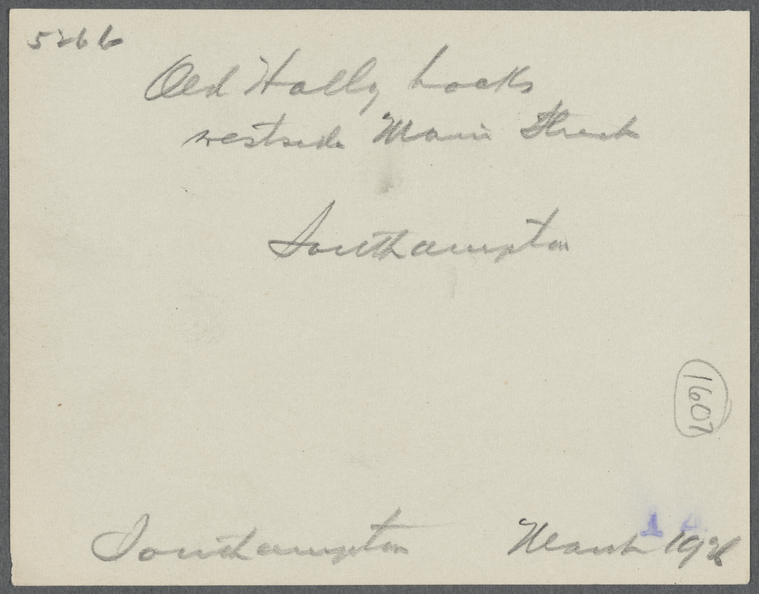 5266
Old Holly hocks
westside Main Street
Southampton
1607
Southampton March 192